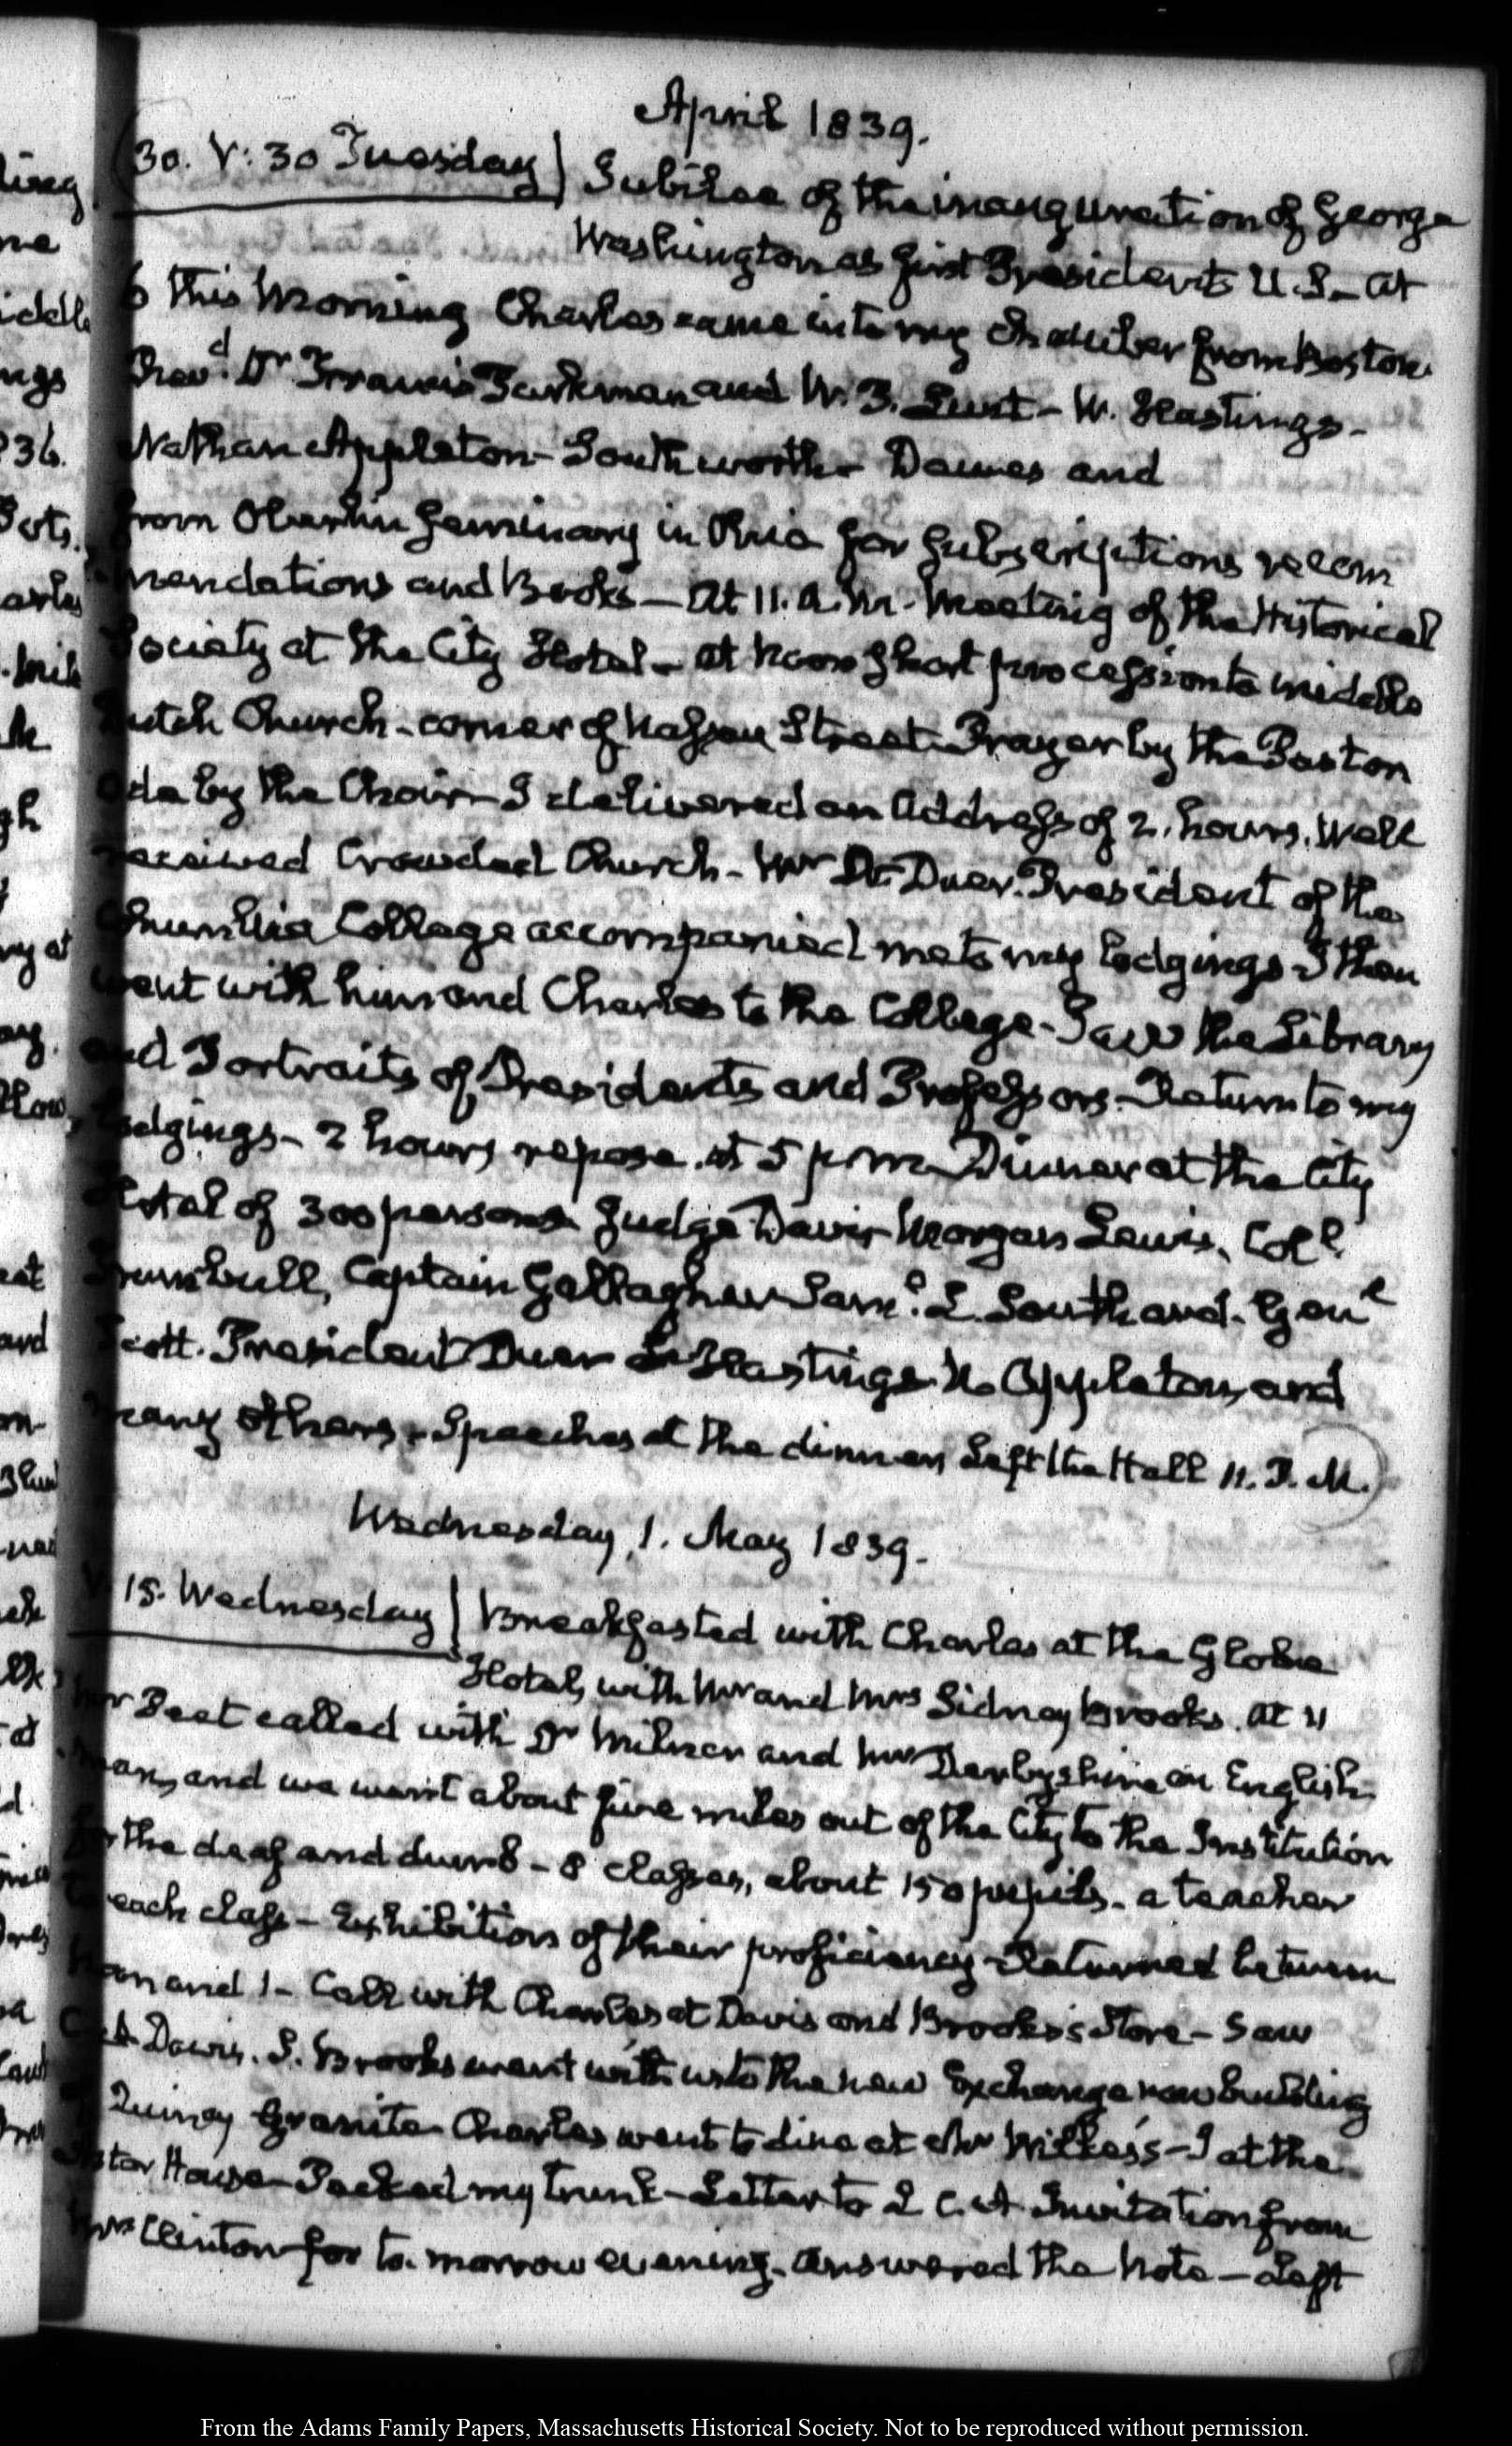 April 1839.
30. V: 30 Tuesday) Jubilee of the inauguration of George
Washington as first President U.S. – at
6 this Morning Charles came into my chamber from Boston.
Revd. Dr Francis Parkman and W. P. Lunt – W. Hastings –
Nathan Appleton – Southworth – Dawes and
from Oberlin Seminary in Ohio for subscriptions recom
mendations and Books – At 11. A.M. Meeting of the Historical
Society at the City Hotel – at Noon short procession to middle
Dutch Church – corner of Nassau Street. Prayer by the Pastor
Ode by the Choir – I delivered an Address of 2. hours. Well
received Crowded Church – Mr Duer. President of the
Columbia College accompanied me to my lodgings I then
went with him and Charles to the College – Saw the Library
and Portraits of Presidents and Professors – Return to my
lodgings – 2 hours repose. at 5 p.m. Dinner at the City
Hotel of 300 persons. Judge Davis Morgan Lewis, Coll.
Trumbull, Captain Gallagher Saml. L. Southard. Genl
Scott. President Duer Hastings. N. Appleton, and
many others. Speeches at the dinner Left the Hall 11. P.M.
Wednesday, 1. May 1839.
V. 15. Wednesday) Breakfasted with Charles at the Globe
Hotel, with Mr and Mrs Sidney Brooks. At 11
Mr Peet called with Dr Milnor and Mr Darbyshire an English
man, and we went about five miles out of the City to the Institution
for the deaf and dumb – 8 classes, about 150 pupils. a teacher
to each class – Exhibitions of their proficiency – Returned between
noon and 1 – Call with Charles at Davis and Brooks's Store – Saw
Davis. S. Brooks went with us to the new Exchange now building
of Quincy Granite – Charles went to dine at Mr Wilkes's – I at the
Astor House – Packed my trunk – Letter to L. C. A Invitation from
Mrs Clinton for to-morrow evening – answered the Note – Left
From the Adams Family Papers, Massachusetts Historical Society. Not to be reproduced without permission.